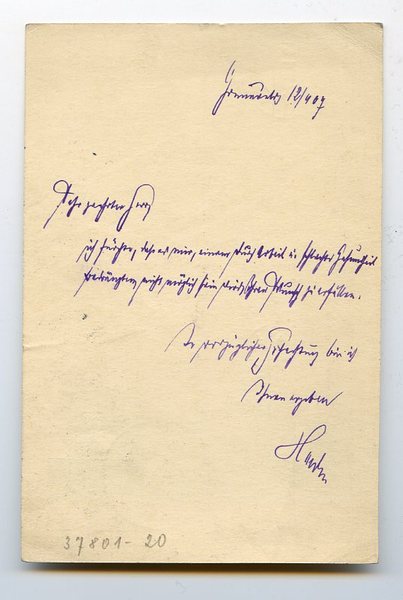 Grunewald, 12/4 07
Sehr geehrter Herr,
ich fürchte, daß es mir, einem durch Arbeit u. schlechte Gesundheit
bedrängten, nicht möglich sein wird, Ihren Wunsch zu erfüllen.
In vorzüglicher Hochachtung bin ich
Ihnen ergeben
Harden
37801-20